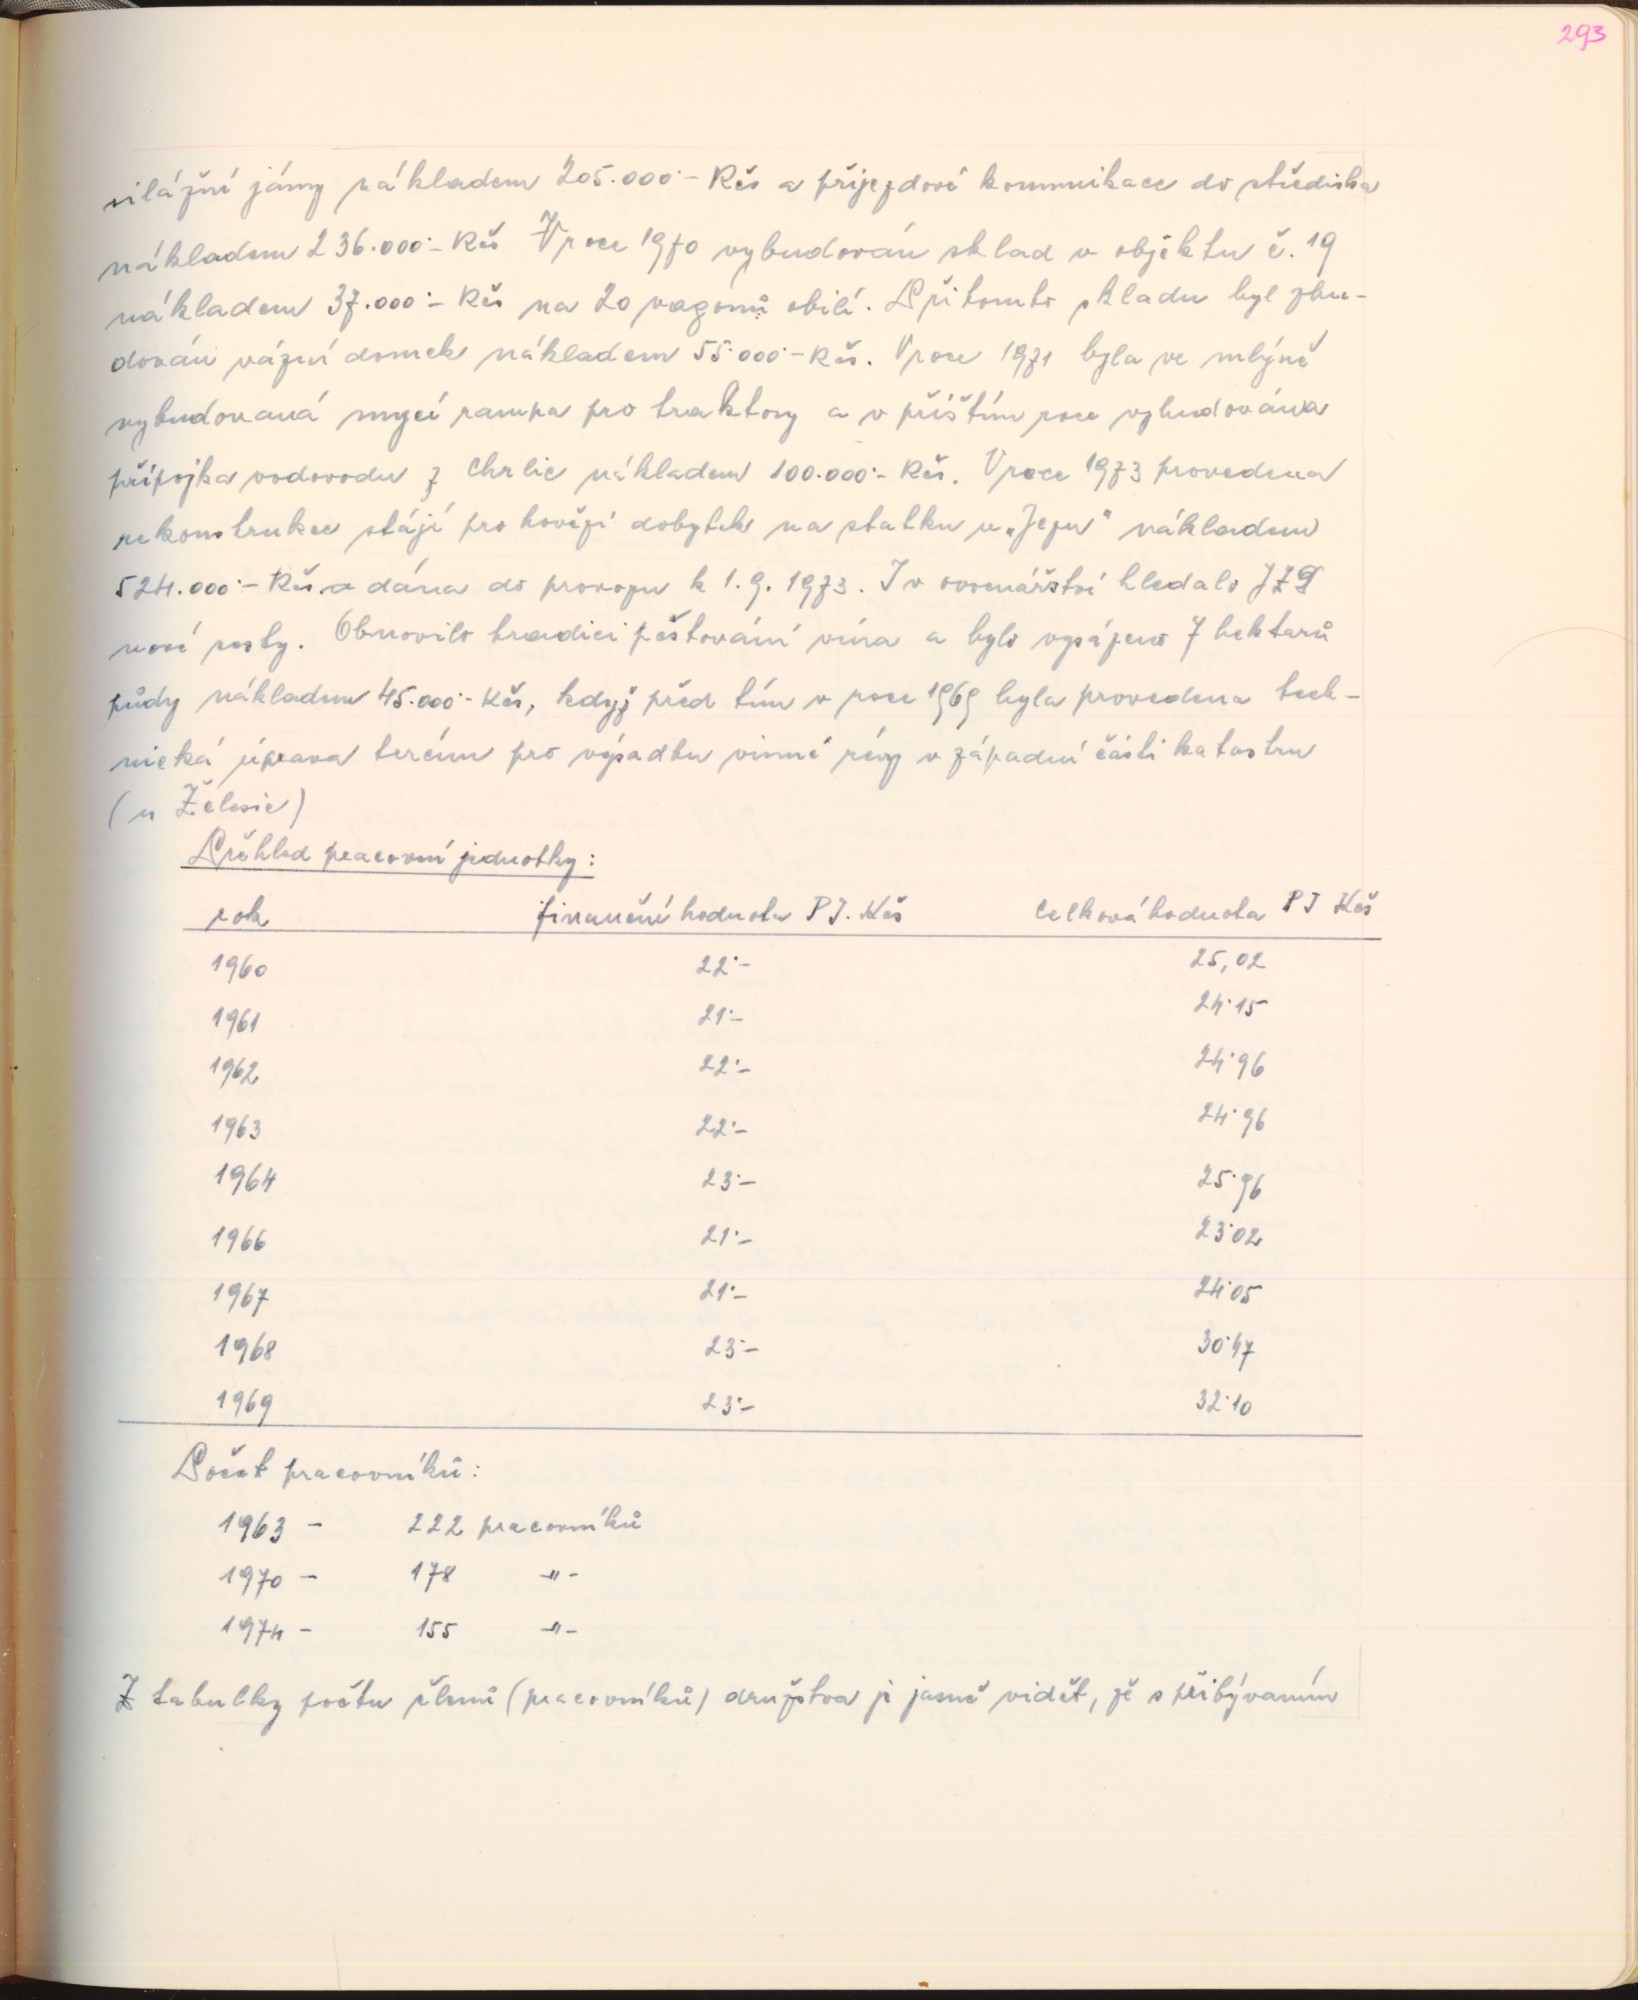 293
silážní jámy nákladem 205.000·- Kčs a příjezdové komunikace do střediska
nákladem 236.000·- Kčs V roce 1970 vybudován sklad v objektu č. 19
nákladem 37.000·- Kčs na 20 vagonů obilí. Při tomto skladu byl zbu-
dován vázní domek nákladem 55.000·- Kčs. V roce 1971 byla ve mlýně
vybudovaná mycí rampa pro traktory a v příštím roce vybudována
přípojka vodovodu z Chrlic nákladem 100.000·- Kčs. V roce 1973 provedena
rekonstrukce stájí pro hovězí dobytek na statku u „Jezu" nákladem
524.000·- Kčs a dána do provozu k 1.9.1973. I v ovocnářství hledalo JZD
nové cesty. Obnovilo tradici pěstování vína a bylo vysázeno 7 hektarů
půdy nákladem 45.000·- Kčs, když před tím v roce 1969 byla provedena tech-
nická úprava terénu pro výsadbu vinné révy v západní části katastru
(u Želešic)
Přehled pracovní jednotky:
rok finanční hodnota PJ. Kčs Celková hodnota PJ Kčs
1960 22·- 25,02
1961 21·- 24·15
1962 22·- 24·96
1963 22·- 24·96
1964 23·- 25·96
1966 21·- 23·02
1967 21·- 24·05
1968 23·- 30·47
1969 23·- 32·10
Počet pracovníků:
1963 - 222 pracovníků
1970 - 178 -"-
1974 - 155 -"-
Z tabulky počtu členů (pracovníků) družstva je jasně vidět, že s přibýváním